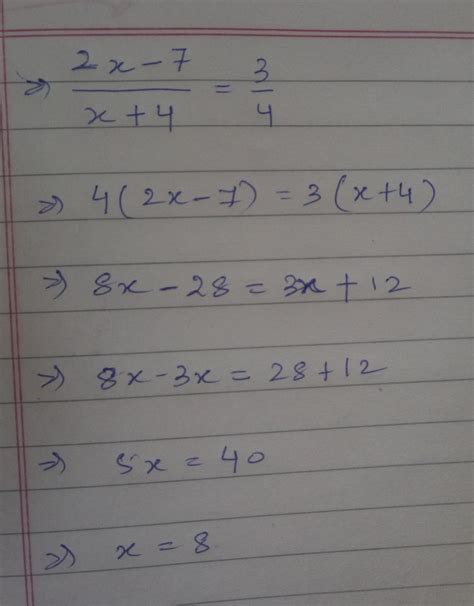 ⇒ (2x-7)/(x+4) = 3/4
⇒ 4(2x-7) = 3(x+4)
⇒ 8x-28 = 3x+12
⇒ 8x-3x = 28+12
⇒ 5x = 40
⇒ x = 8